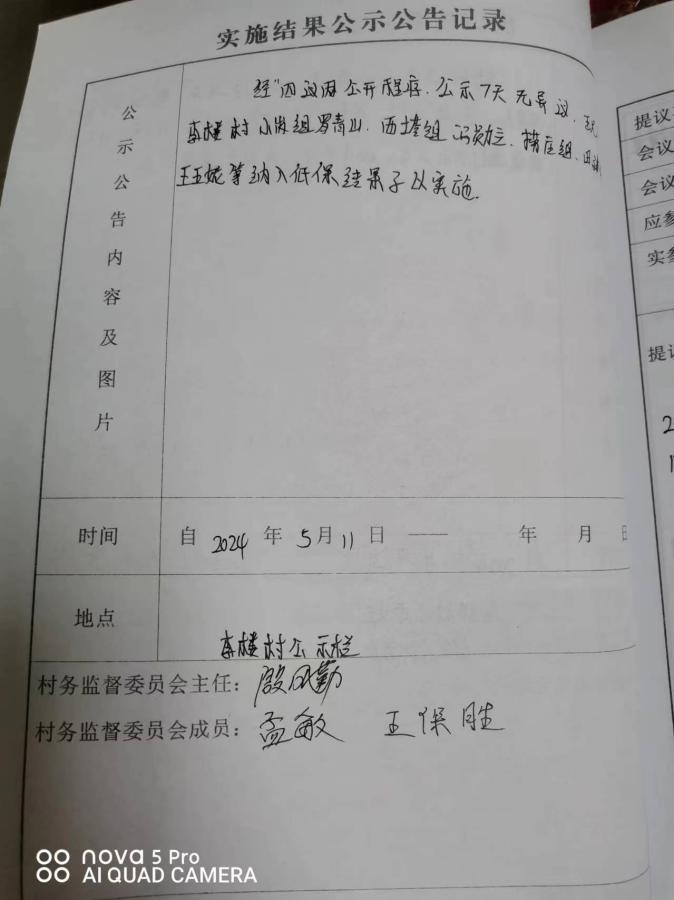 实施结果公示公告记录
公示公告内容及图片
经"四议两公开程序.公示7天无异议,
李楼村小岗组罗青山.西堂组 组.
等纳入低保结果予以实施.
时间
自 2024 年 5月11日 —— 年 月 日
地点
李楼村公示栏
村务监督委员会主任：殷成勤
村务监督委员会成员：孟敏 王保胜
提议
会议
会议
应参
实参
提议
2
nova 5 Pro
AI QUAD CAMERA